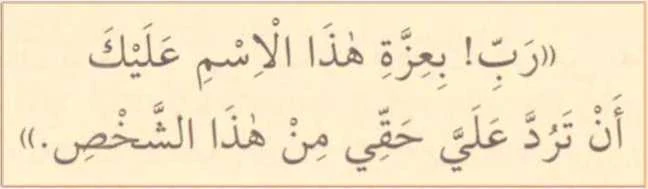 «رَبِّ! بِعِزَّةِ هٰذَا الْاِسْمِ عَلَيْكَ
أَنْ تَرُدَّ عَلَيَّ حَقِّي مِنْ هٰذَا الشَّخْصِ.»